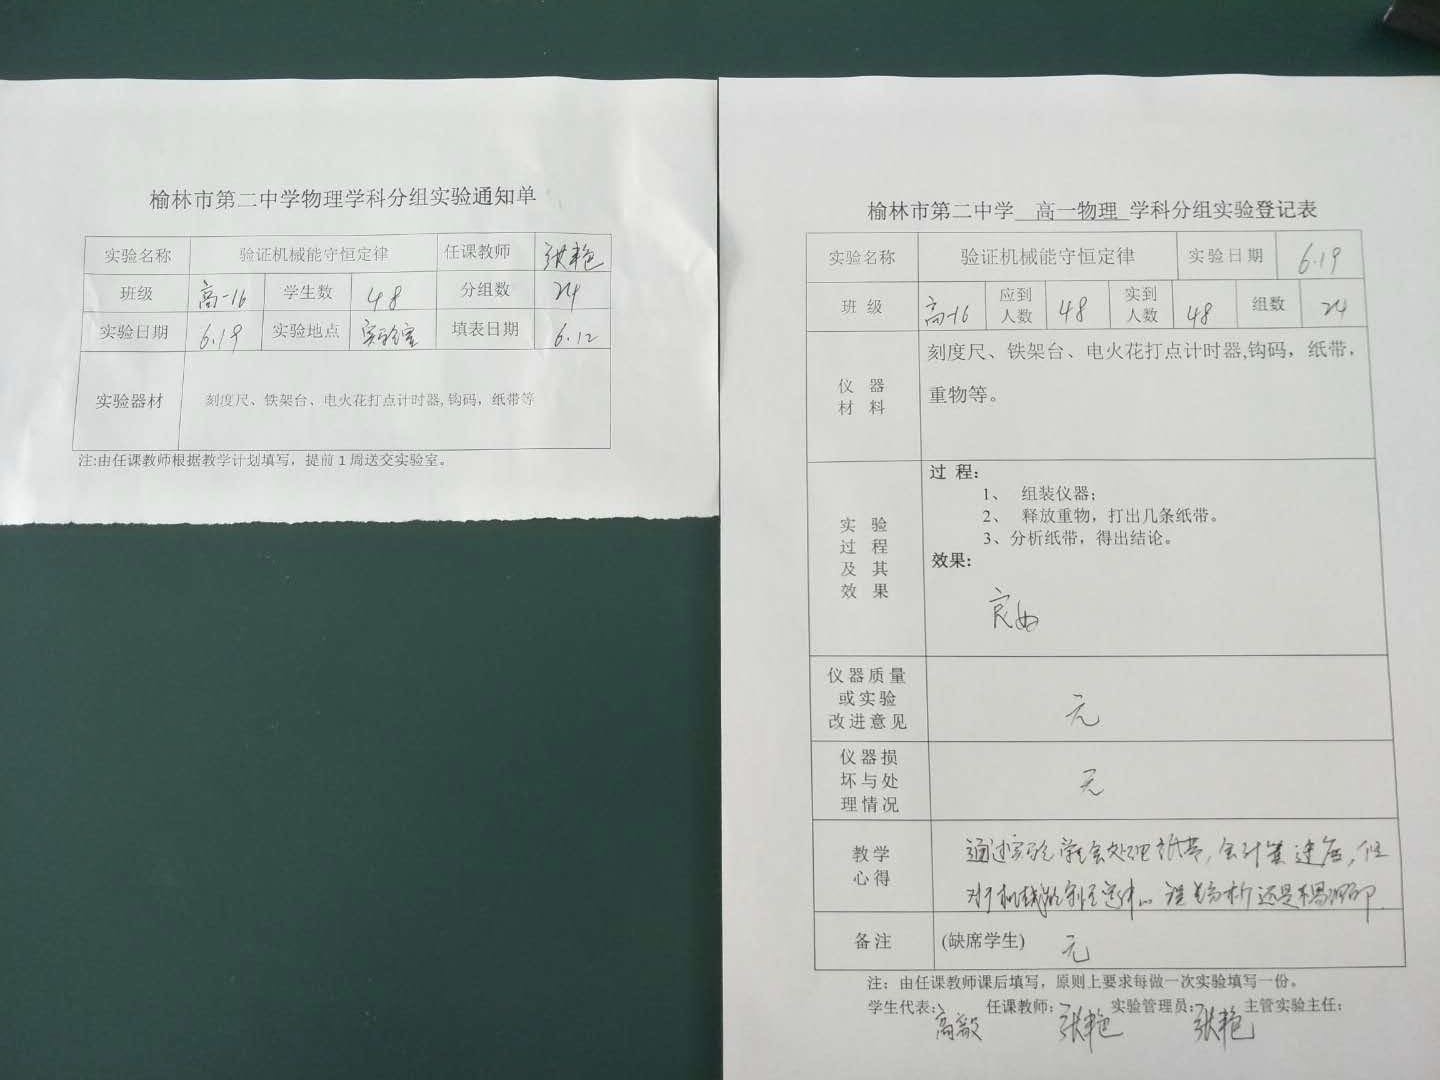 榆林市第二中学物理学科分组实验通知单
实验名称 验证机械能守恒定律 任课教师 张艳
班级 高一16 学生数 48 分组数 24
实验日期 6.19 实验地点 实验室 填表日期 6.12
实验器材 刻度尺、铁架台、电火花打点计时器,钩码，纸带等
注:由任课教师根据教学计划填写，提前1周送交实验室。
榆林市第二中学 高一物理 学科分组实验登记表
实验名称 验证机械能守恒定律 实验日期 6.19
班 级 高一16 应到人数 48 实到人数 48 组数 24
仪 器
材 料
刻度尺、铁架台、电火花打点计时器,钩码，纸带，
重物等。
实 验
过 程
及 其
效 果
过 程:
1、 组装仪器;
2、 释放重物，打出几条纸带。
3、分析纸带，得出结论。
效果:
良好
仪器质量
或实验
改进意见
无
仪器损
坏与处
理情况
无
教学
心得
通过实验学会处理纸带,会计算速度,但
对于机械能守恒定律的误差分析还是不
备注 (缺席学生) 无
注: 由任课教师课后填写，原则上要求每做一次实验填写一份。
学生代表: 任课教师: 张艳 实验管理员: 张艳 主管实验主任: